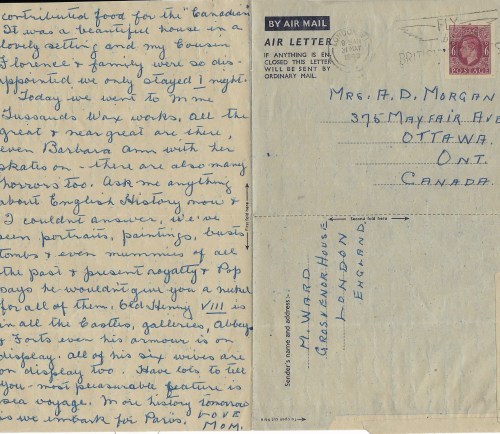 contributed food for the "Canadian
It was a beautiful house in a
lovely setting and my Cousin
Florence & family were so dis-
appointed we only stayed 1 night.
Today we went to Mme
Tussands Wax works, all the
great & near great are there,
even Barbara Ann with her
skates on - there are also many
horrors too. Ask me anything
about English History now &
I couldnt answer, we've
seen portraits, paintings, busts
tombs & even mummies of all
the past & present royalty & Pop
says he wouldnt give you a nickel
for all of them. Old Henry VIII is
in all the Castles, galleries, Abbey
& Forts even his armour is on
display. all of his six wives are
on display too. Have lots to tell
you - most pleasurable feature is
sea voyage. More history tomorrow
as we embark for Paris. LOVE
MOM.
First fold here
BY AIR MAIL
AIR LETTER
IF ANYTHING IS EN-
CLOSED THIS LETTER
WILL BE SENT BY
ORDINARY MAIL.
FLY
BRITISH
6 6
POSTAGE
MRS. A. D. MORGAN
375 MAYFAIR AVE
OTTAWA.
ONT.
CANADA.
Second fold here
Sender's name and address:-
M. WARD
GROSVENOR HOUSE
LONDON
ENGLAND